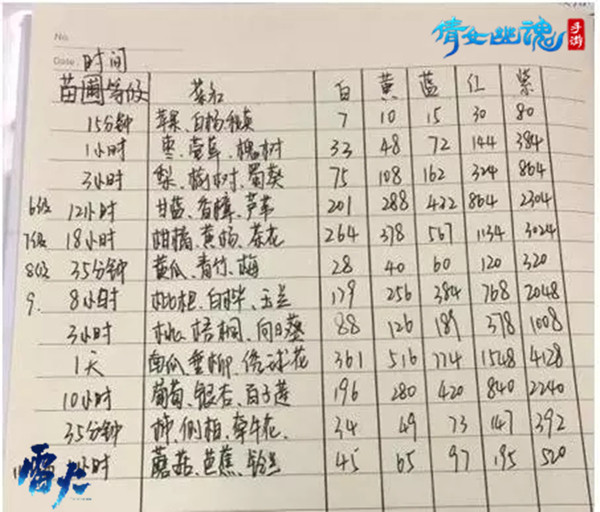 倩女幽魂 手游
No.
Date 时间
苗圃等级 白 黄 蓝 红 紫
15分钟 苹果、白杨、 7 10 15 30 80
1小时 枣、萱草、槐树 33 48 72 144 384
3小时 梨、榆树、蜀葵 75 108 162 324 864
6级 12小时 甘蓝、香樟、芦苇 201 288 432 864 2304
7级 18小时 柑橘、黄杨、茶花 264 378 567 1134 3024
8级 35分钟 黄瓜、青竹、梅 28 40 60 120 320
9. 8小时 枇杷、白桦、玉兰 179 256 384 768 2048
3小时 桃、梧桐、向日葵 88 126 189 378 1008
1天 南瓜、垂柳、绣球花 361 516 774 1548 4128
10小时 葡萄、银杏、百子莲 196 280 420 840 2240
35分钟 柿、侧柏、牵牛花、 34 49 73 147 392
小时 蘑菇、芭蕉、铃兰 45 65 97 195 520
雷火